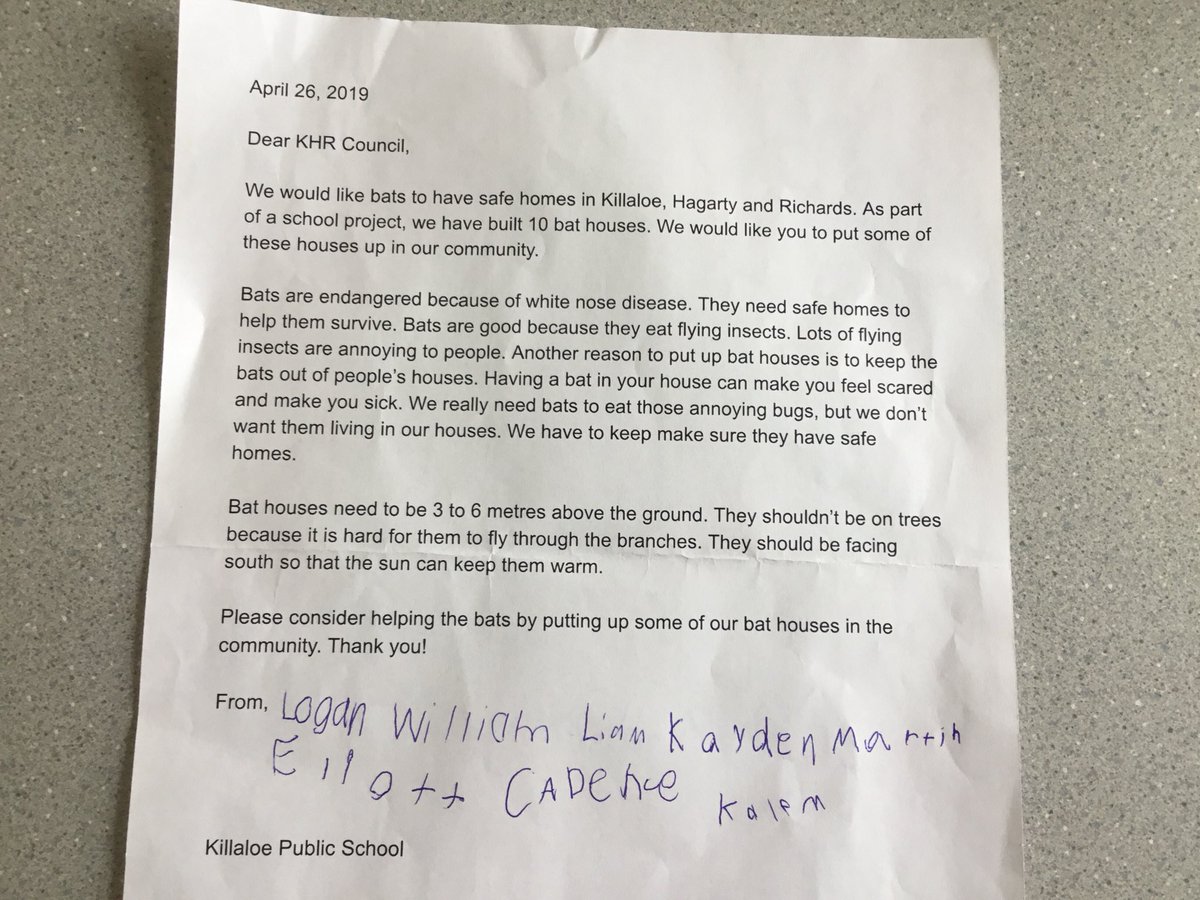 April 26, 2019
Dear KHR Council,
We would like bats to have safe homes in Killaloe, Hagarty and Richards. As part
of a school project, we have built 10 bat houses. We would like you to put some of
these houses up in our community.
Bats are endangered because of white nose disease. They need safe homes to
help them survive. Bats are good because they eat flying insects. Lots of flying
insects are annoying to people. Another reason to put up bat houses is to keep the
bats out of people's houses. Having a bat in your house can make you feel scared
and make you sick. We really need bats to eat those annoying bugs, but we don't
want them living in our houses. We have to keep make sure they have safe
homes.
Bat houses need to be 3 to 6 metres above the ground. They shouldn't be on trees
because it is hard for them to fly through the branches. They should be facing
south so that the sun can keep them warm.
Please consider helping the bats by putting up some of our bat houses in the
community. Thank you!
From, Logan William Liam Kayden Martin
Eilott Cadence Kalem
Killaloe Public School